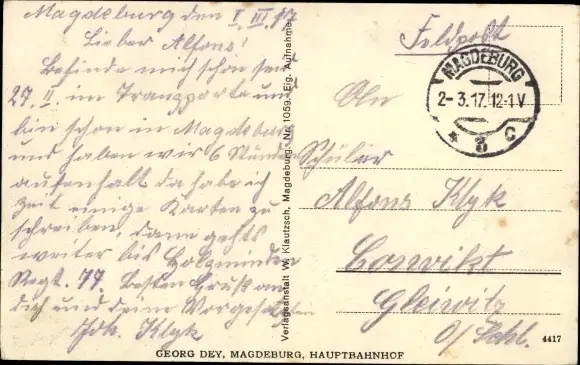 Magdeburg den I. III. 17
Lieber Alfons!
Befinde mich schon seit
27. II. im Transporte und
bin schon in Magdeburg
und haben wir 6 Stunden
aufenthalt da habe ich
Zeit einige Karten zu
schreiben, dann gehts
weiter bis Holzminden
Regt. 77. Besten Gruß an
dich und deine Vorgesetzten
Joh. Klyk
Verlagsanstalt W. Klautzsch, Magdeburg. Nr. 1059. Eig. Aufnahme.
Feldpost
MAGDEBURG
2-3.17.12-1V
* 3 C
An
Schüler
Alfons Klyk
Convikt
Gleiwitz
O/Schl.
4417
GEORG DEY, MAGDEBURG, HAUPTBAHNHOF